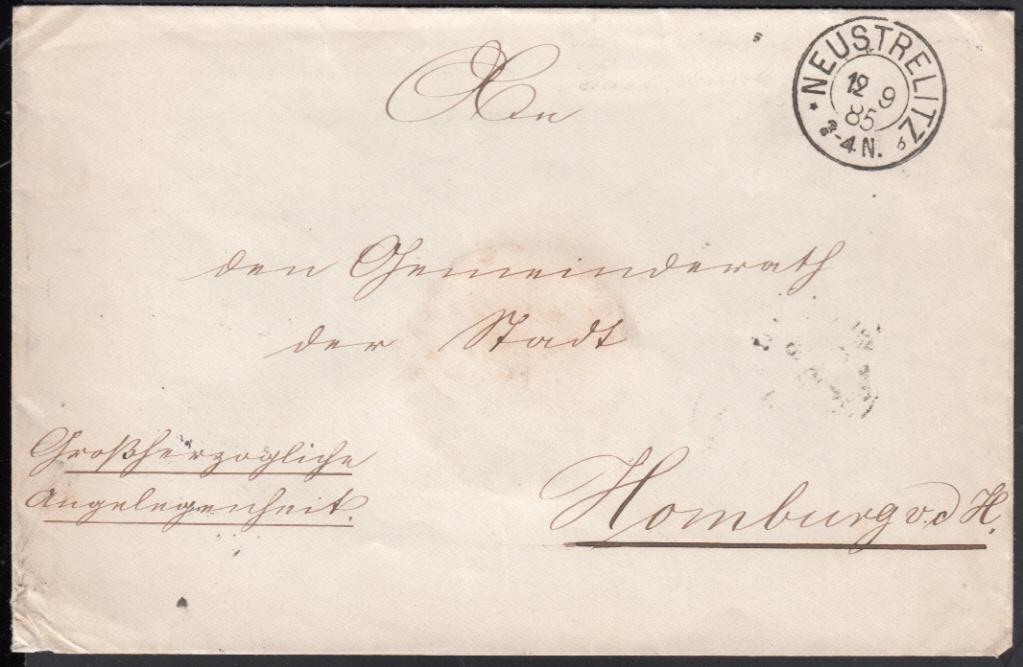 An
NEUSTRELITZ
12 9
85
3-4 N.
den Gemeinderath
der Stadt
Großherzogliche
Angelegenheit.
Homburg v. d H.